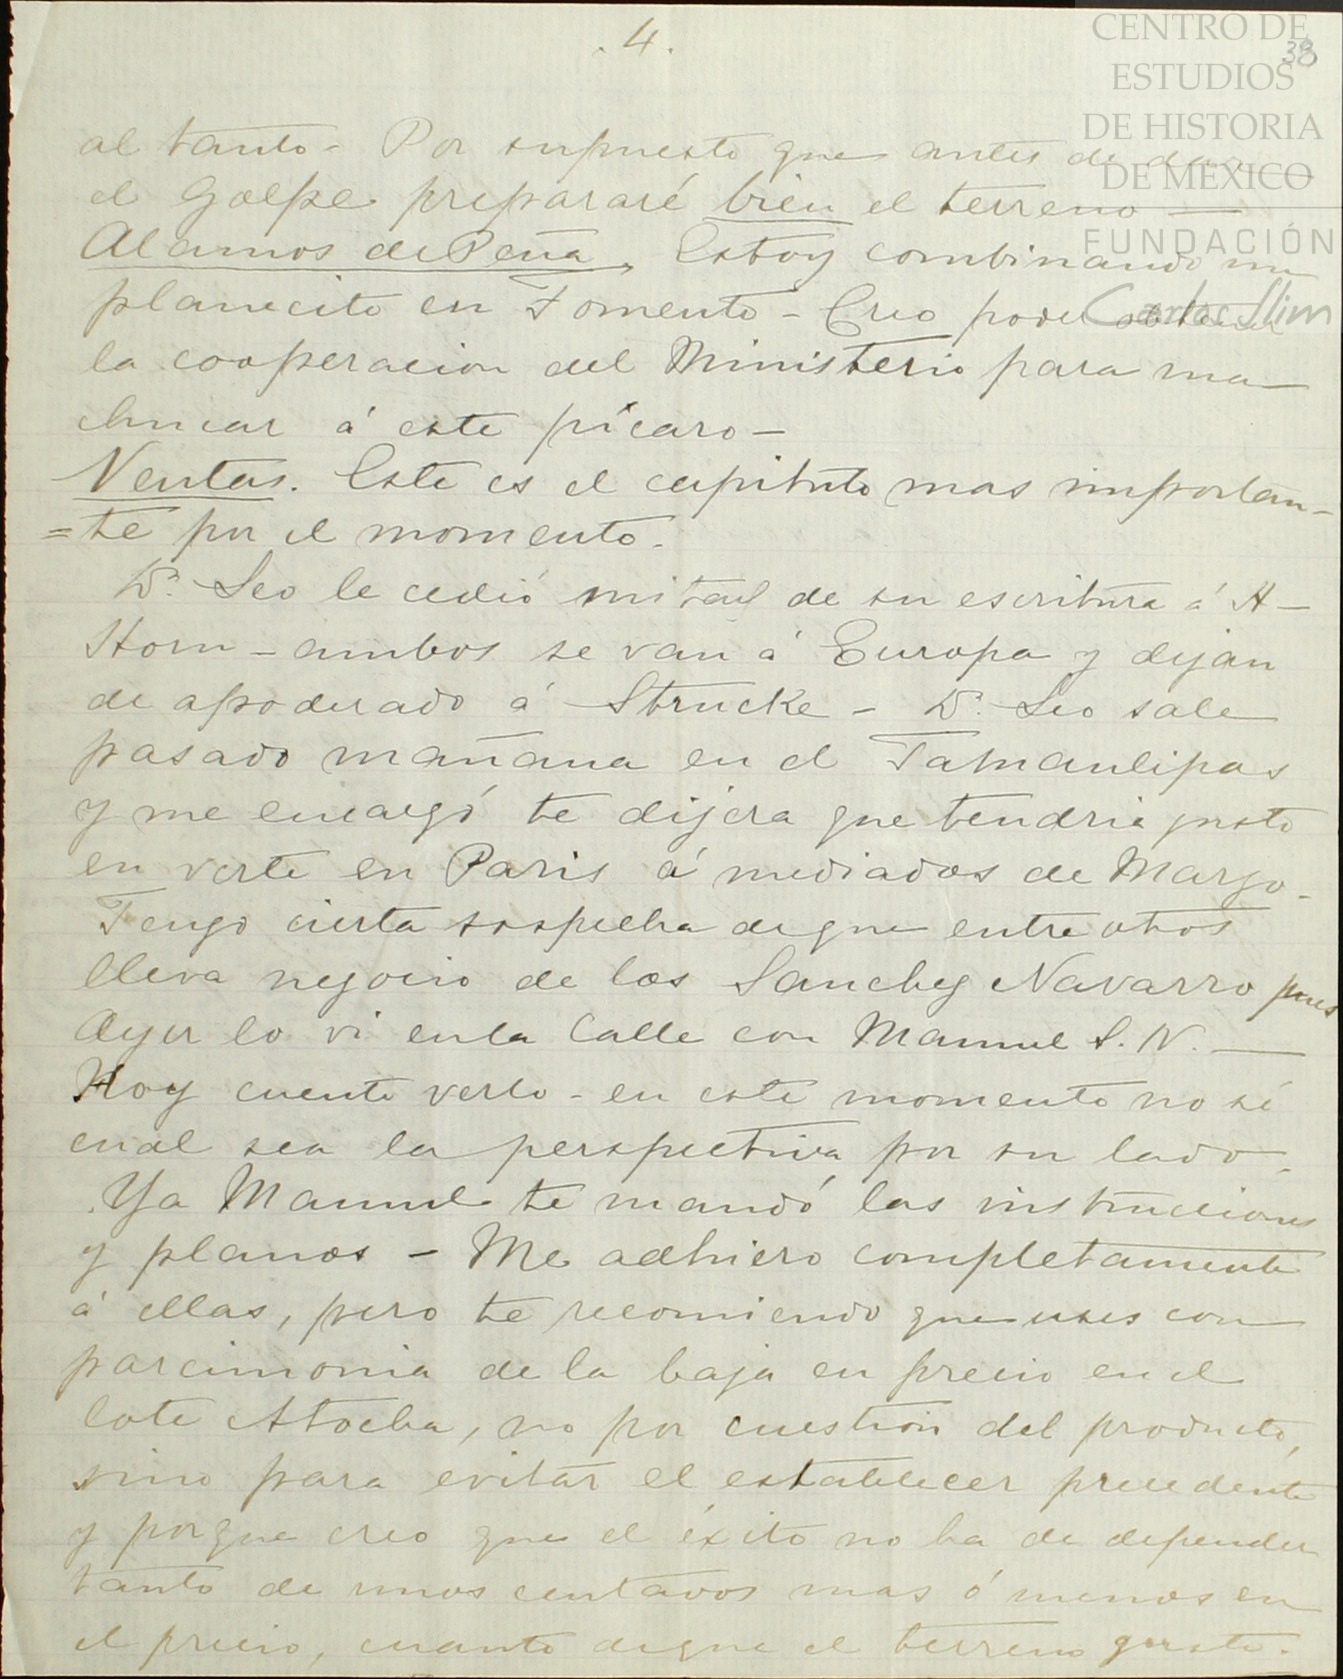 . 4 .
38
CENTRO DE
ESTUDIOS
DE HISTORIA
DE MÉXICO
FUNDACIÓN
Carlos Slim
al tanto - Por supuesto que antes de dar
el Golpe prepararé bien el terreno —
Alamos de Peña. Estoy combinando un
planecito en Fomento - Creo poder obtener
la cooperacion del Ministerio para ma
chucar á este pícaro -
Ventas. Este es el capitulo mas importan-
=te por el momento.
Dr. Leo le cedió mitad de su escritura á A-
Horn - ambos se van á Europa y dejan
de apoderado á Strucke - Dr. Leo sale
pasado mañana en el Tamaulipas
y me encargó te dijera que tendria gusto
en verte en Paris á mediados de Marzo.
Tengo cierta sospecha de que entre otros
lleva negocio de los Sanchez Navarro pues
Ayer lo vi en la Calle con Manuel S. N. —
Hoy cuento verlo - en este momento no sé
cual sea la perspectiva por su lado.
Ya Manuel te mandó las instrucciones
y planos - Me adhiero completamente
á ellas, pero te recomiendo que uses con
parcimonia de la baja en precio en el
lote Atocha, no por cuestion del producto,
sino para evitar el establecer precedente
y porque creo que el éxito no ha de depender
tanto de unos centavos mas ó menos en
el precio, cuanto de que el terreno guste.